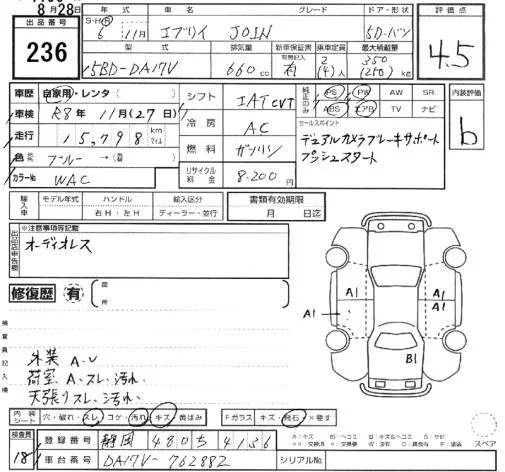 8月28日
出品番号
236
年式 車名 グレード ドア・形状
S・H・R 6年 11月 エブリイ JOIN 5D-バン
型式 排気量 新車保証書 乗車定員 最大積載量
5BD-DA17V 660cc 有無記入 有 2(4)人 350(250)kg
評価点
4.5
車歴 自家用・レンタ( )
車検 R8年11月(27日)
走行 15,798 km マイル
色 ブルー→( )
カラーNo WAC
シフト IAT CVT
冷房 AC
燃料 ガソリン
リサイクル料金 8.200円
純正のみ PS PW AW SR
ABS エアB TV ナビ
セールスポイント
デュアルカメラブレーキサポート
プッシュスタート
内装評価
b
輸入車 モデル年式 ハンドル 輸入区分
年 右H・左H ディーラー・並行
書類有効期限
月 日迄
出品店申告欄
※注意事項等記載
オーディオレス
修復歴 有 箇所
検査員記入欄
外装 A・U
荷室 A・スレ、汚れ、
天張りスレ、汚れ、
A1
A1
A1
B1
内装シート 穴・破れ・スレ コゲ・汚れ・キズ・黄ばみ
Fガラス キズ・飛石・×要す
A:キズ B:ヘコミ
スペア
検査員
18
登録番号 静岡 480 ち 4136
車台番号 DA17V-762882 シリアルNo